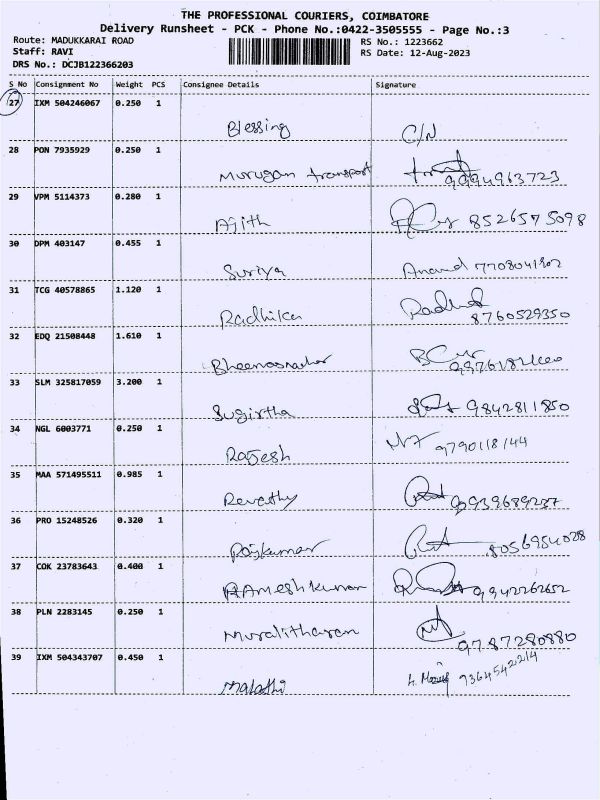 THE PROFESSIONAL COURIERS, COIMBATORE
Delivery Runsheet - PCK - Phone No.:0422-3505555 - Page No.:3
Route: MADUKKARAI ROAD RS No.: 1223662
Staff: RAVI RS Date: 12-Aug-2023
DRS No.: DCJB122366203
S No Consignment No Weight PCS Consignee Details Signature
27 IXM 504246067 0.250 1
Blessing C/N
28 PON 7935929 0.250 1
Murugan transport 9994963723
29 VPM 5114373 0.280 1
Ajith 8526575098
30 DPM 403147 0.455 1
Suriya Anand 7708041802
31 TCG 40578865 1.120 1
Radhika
8760529350
32 EDQ 21508448 1.610 1
33 SLM 325817059 3.200 1
Sugirtha 9842811850
34 NGL 6003771 0.250 1
Rajesh 9790118144
35 MAA 571495511 0.985 1
Revathy 9939689237
36 PRO 15248526 0.320 1
Rajkumar 8056954028
37 COK 23783643 0.400 1
RAmeshkumar 9942262652
38 PLN 2283145 0.250 1
Muralitharan 9787280880
39 IXM 504343707 0.450 1
Malathi 9364542214